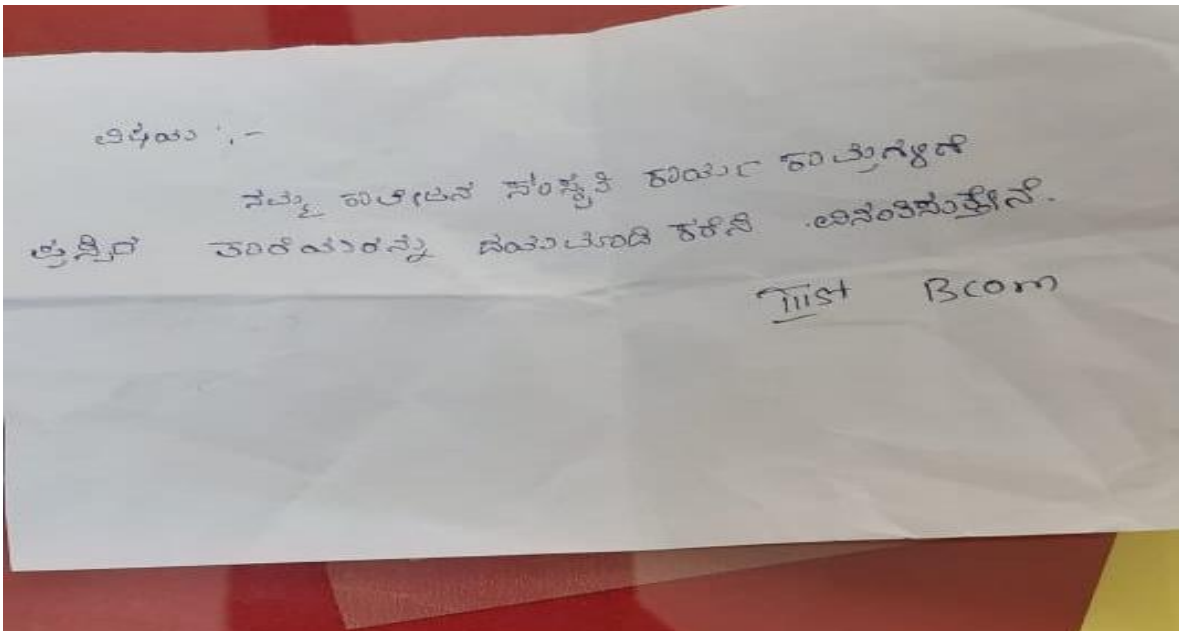 ವಿಷಯ :-
ನಮ್ಮ ಕಾಲೇಜಿನ ಸಂಸ್ಕೃತಿ ಕಾರ್ಯ
ತಾರೆಯಾರನ್ನು ದಯಮಾಡಿ ಕರೆಸಿ .ವಿನಂತಿಸುತ್ತೇನೆ.
IIIst Bcom